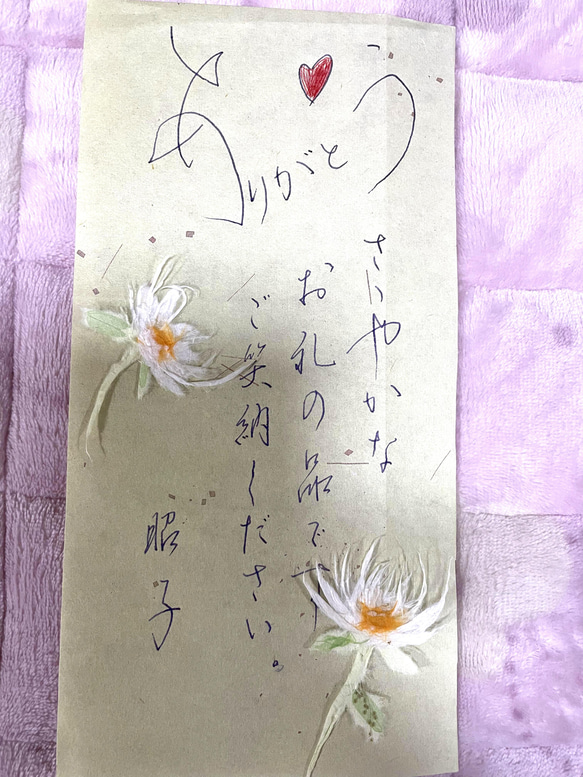 ありがとう
ささやかな
お礼の品です
ご笑納ください。
昭子